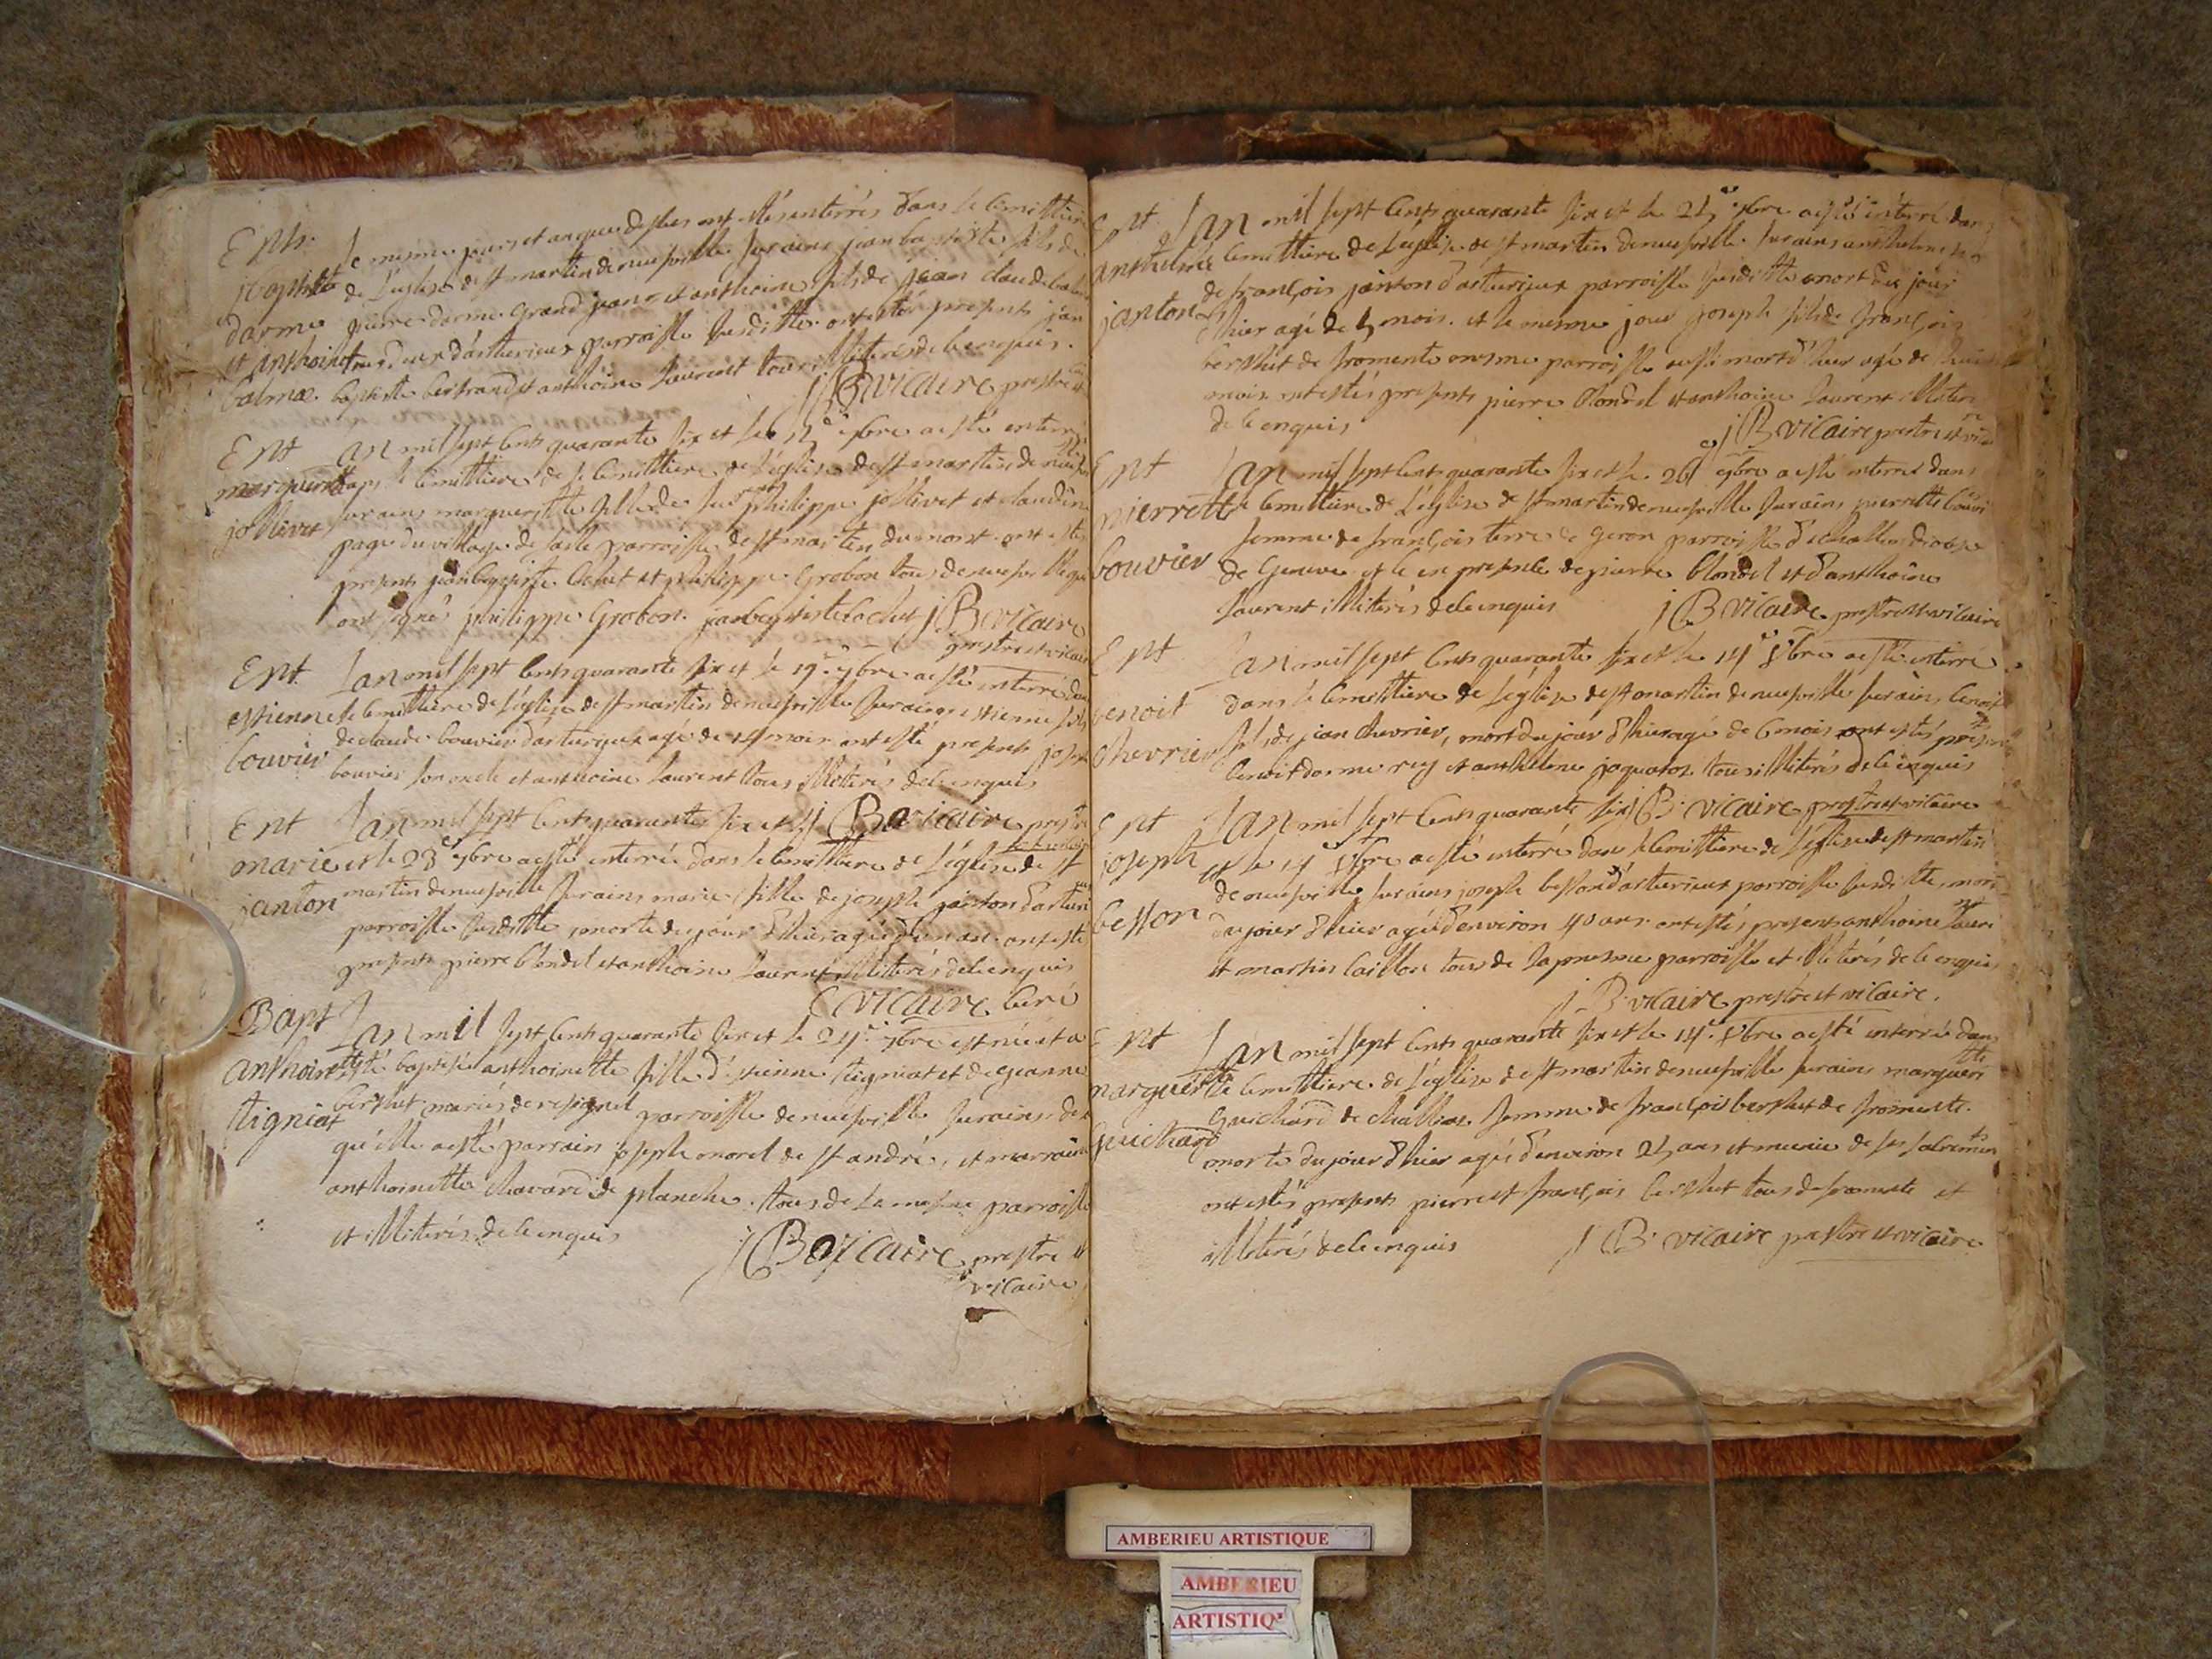 Ents.
jbaptiste
darme
et anthoine
balmæ.
le mesme jour et an que dessus ont estés enterrés dans le cimettiere
de l'eglise de st martin de neufville surains jean baptiste fils de
pierre darme grand jean et anthoine fils de jean claude balmæ
tous deux d'arturieux parroisse susditte ont estés presents jean
baptiste bertrand et anthoine laurent tous illiterés de ce enquis.
jB vicaire prestre
Ent
marguerite
jollivet
Lan mil sept cents quarante six et le 15e 7bre a esté enterrée
dans le cimettiere de le cimettiere de l'eglise de st martin de neufville
surains marguerite fille de feu philippe jollivet et claudine
page du village de parroisse de st martin du mont ont estés
presents jean baptiste Cochet et philippe Grobon tous de neufville qui
ont signé philippe Grobon. jean baptiste Cochet jB vicaire
prestre et vicaire
Ent.
estienne
bouvier
Lan mil sept cents quarante six et le 19e 7bre a esté interré dans
le cimettiere de l'eglise de st martin de neufville surains estienne fils
de claude bouvier d'arturieux agé de mois ont esté presents joseph
bouvier son oncle et anthoine laurent tous illiterés de ce enquis
jB vicaire prestre
Ent
marie
janton
Lan mil sept cents quarante six et
et le 23e 7bre a esté enterrée dans le cimettiere de l'eglise de st
martin de neufville surains marie fille de joseph janton d'arturieux
parroisse susditte morte du jour d'hier agée d'un an. ont esté
presents pierre blondel et anthoine laurent illiterés de ce enquis
vicaire curé
Bapt
anthoinette
tigniat
Lan mil sept cents quarante six et le 24e 7bre est née et a
esté baptisée anthoinette fille d'estienne tigniat et de jeanne
berthet mariés de resignel parroisse de neufville surains des
qu'elle a esté parrain joseph morel de st andré, et marraine
anthoinette chavard de planche. tous de la mesme parroisse
et illiterés de ce enquis
jB vicaire prestre et
vicaire
Ent
anthelme
janton
Lan mil sept cents quarante six et le 25e 7bre a esté interré dans
le cimettiere de l'eglise de st martin de neufville surains anthelme fils
de françois janton d'arturieux parroisse susditte mort du jour
d'hier agé de 5 mois. et le mesme jour joseph fils de françois
berthet de fromente mesme parroisse aussi mort d'hier agé de
mois ont estés presents pierre blondel et anthoine laurent illiterés
de ce enquis
jB vicaire prestre et vicaire
Ent
pierrette
bouvier
Lan mil sept cents quarante six et le 26 7bre a esté enterrée dans
le cimettiere de l'eglise de st martin de neufville surains pierrette bouvier
femme de françois terre de geron parroisse d'echallon diocese
de Geneve et le en presence de pierre blondel et d'anthoine
laurent illiterés de ce enquis
jB vicaire prestre et vicaire
Ent
benoit
chevrier
Lan mil sept cents quarante six et le 14e 8bre a esté enterré
dans le cimettiere de l'eglise de st martin de neufville surains benoit
fils de jean chevrier, mort du jour d'hier agé de 6 mois ont estés presents
benoit darme rey et anthelme jaquatoz tous illiterés de ce enquis
jB vicaire prestre et vicaire
Ent
joseph
besson
Lan mil sept cents quarante six
et le 14e 8bre a esté enterré dans le cimettiere de l'eglise de st martin
de neufville surains joseph besson d'arturieux parroisse susditte, mort
du jour d'hier agé d'environ 40 ans ont estés presents anthoine laurent
et martin caillon tous de la mesme parroisse et illiterés de ce enquis
jB vicaire prestre et vicaire.
Ent
marguerite
guichard
Lan mil sept cents quarante six et le 14e 8bre a esté enterrée dans
le cimettiere de l'eglise de st martin de neufville surains marguerite
Guichard de challes femme de françois berthet de fromente.
morte du jour d'hier agée d'environ 25 ans et munie de ses sacrements
ont estés presents pierre et françois berthet tous de fromente et
illiterés de ce enquis
jB vicaire prestre et vicaire
AMBERIEU ARTISTIQUE
AMBERIEU
ARTISTIQ